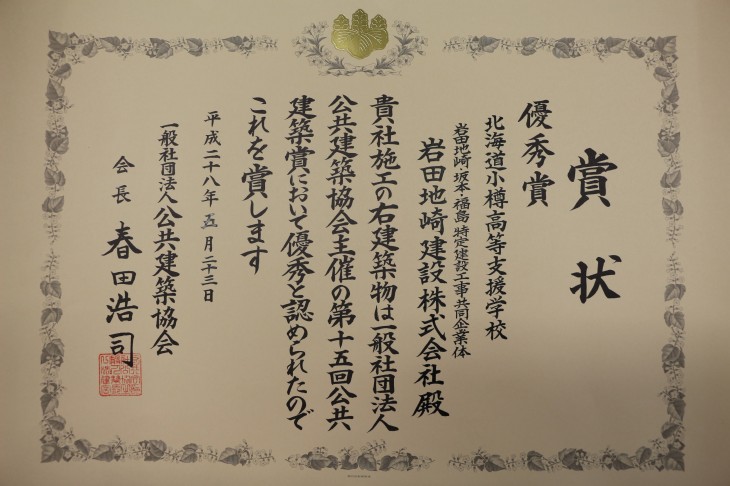 賞状
優秀賞
北海道小樽高等支援学校
岩田地崎・坂本・福島 特定建設工事共同企業体
岩田地崎建設株式会社殿
貴社施工の右建築物は一般社団法人
公共建築協会主催の第十五回公共
建築賞において優秀と認められたので
これを賞します
平成二十八年五月二十三日
一般社団法人公共建築協会
会長 春田浩司